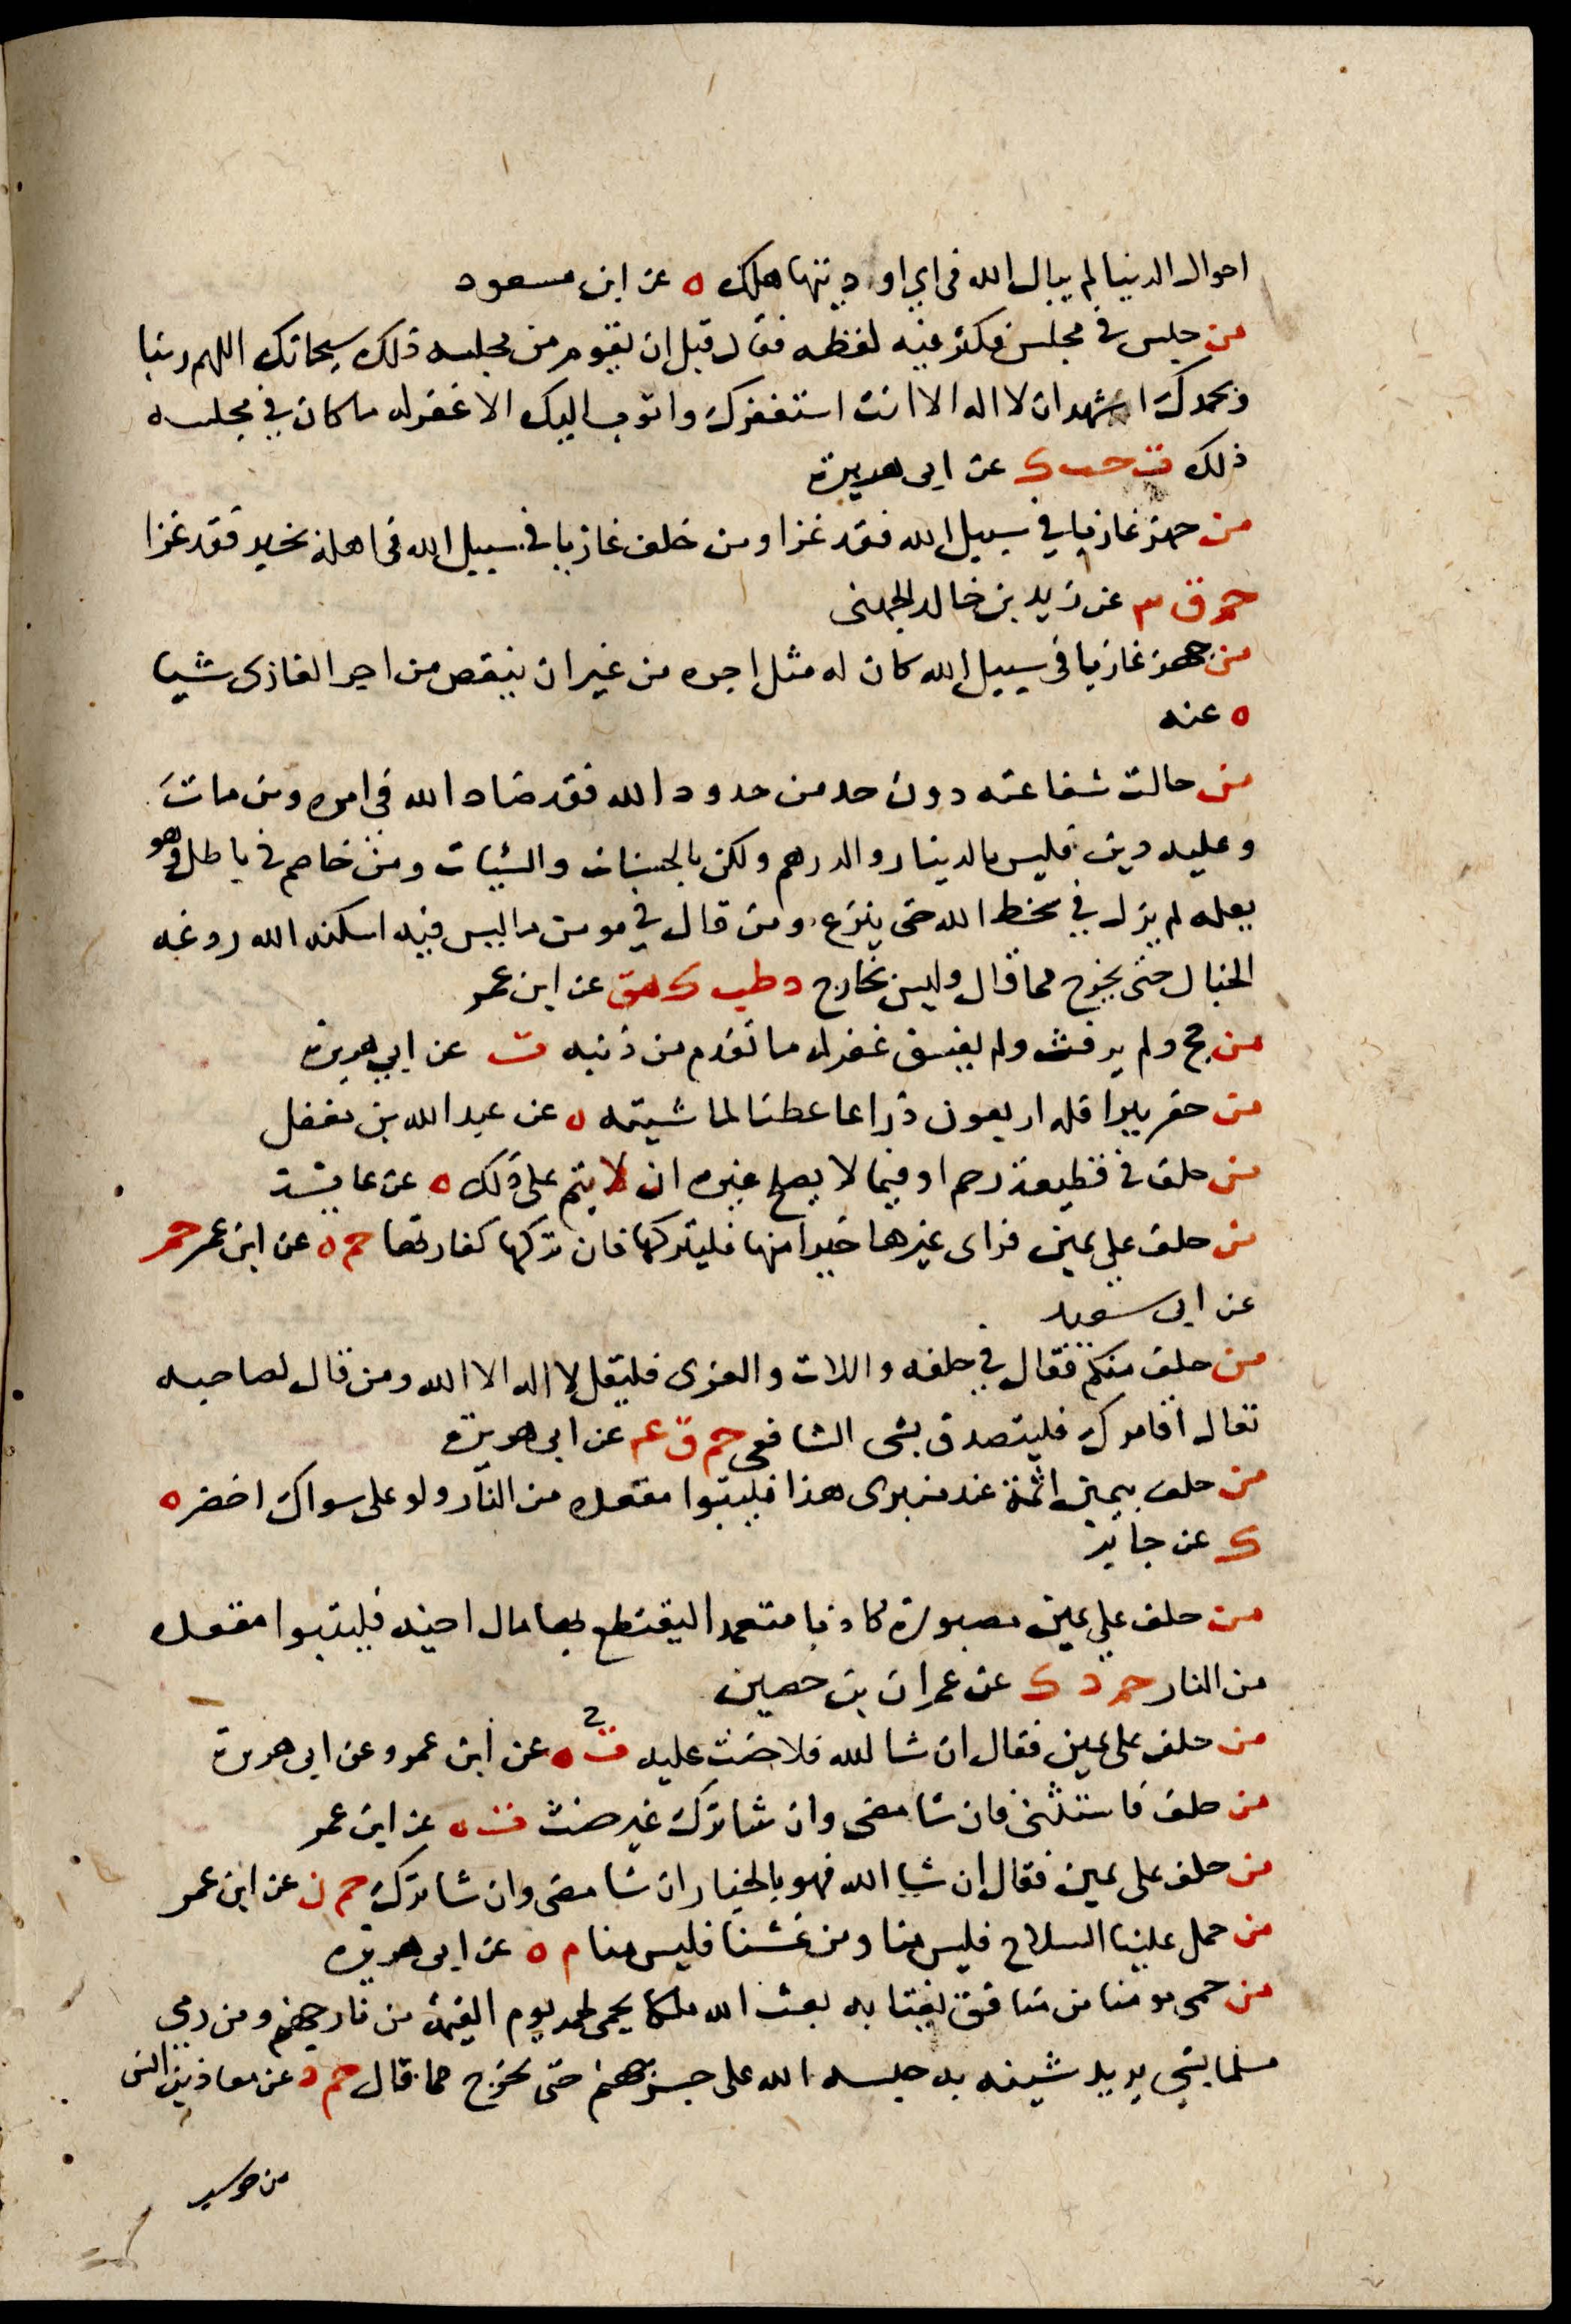 احوال الدنيا لم يبال الله في اي اوديتها هلك ه عن ابن مسعود
من جلس في مجلس فكثر فيه لغطه فقال قبل ان يقوم من مجلسه ذلك سبحانك اللهم ربنا
وبحمدك اشهد ان لا اله الا انت استغفرك واتوب اليك الا غفر له ما كان في مجلسه
ذلك ت حب ك عن ابي هريرة
من جهز غازيا في سبيل الله فقد غزا ومن خلف غازيا في سبيل الله في اهله بخير فقد غزا
حم ق ٣ عن زيد بن خالد الجهني
من جهز غازيا في سبيل الله كان له مثل اجره من غير ان ينقص من اجر الغازي شيا
ه عنه
من حالت شفاعته دون حد من حدود الله فقد ضاد الله في امره ومن مات
وعليه دين فليس بالدينار والدرهم ولكن بالحسنات والسيات ومن خاصم في باطل وهو
يعلمه لم يزل في سخط الله حتى ينزع ومن قال في مومن ما ليس فيه اسكنه الله ردغه
الخبال حتى يخرج مما قال وليس بخارج د طب ك هق عن ابن عمر
من حج ولم يرفث ولم يفسق غفر له ما تقدم من ذنبه ت عن ابي هريرة
من حفر بيرا فله اربعون ذراعا عطنا لماشيته ه عن عبد الله بن مغفل
من حلف في قطيعة رحم او فيما لا يصلح غيره ان لا يتم على ذلك ه عن عايشة
من حلف على يمين فراى غيرها خيرا منها فليتركها فان تركها كفارتها حم ه عن ابن عمر حم
عن ابي سعيد
من حلف منكم فقال في حلفه واللات والعزى فليقل لا اله الا الله ومن قال لصاحبه
تعال اقامرك فليتصدق بشى الشافعي حم ق ع عن ابي هريرة
من حلف بيمين اثمة عند منبري هذا فليتبوا مقعده من النار ولو على سواك اخضر ه
ك عن جابر
من حلف على يمين مصبورة كاذبا متعمدا ليقتطع بها مال اخيه فليتبوا مقعده
من النار حم د ك عن عمران بن حصين
من حلف على يمين فقال ان شا الله فلا حنث عليه ت ه عن ابن عمر وعن ابي هريرة
من حلف فاستثنى فان شا مضى وان شا ترك غير حنث ت ه عن ابن عمر
من حلف على يمين فقال ان شا الله فهو بالخيار ان شا مضى وان شا ترك حم ن عن ابن عمر
من حمل علينا السلاح فليس منا ومن غشنا فليس منا م ه عن ابي هريرة
من حمى مومنا من منافق يغتابه بعث الله ملكا يحمى لحمه يوم القيمة من نار جهنم ومن رمى
مسلما بشي يريد شينه به حبسه الله على جسر جهنم حتى يخرج مما قال حم د عن معاذ بن انس
من حوسب